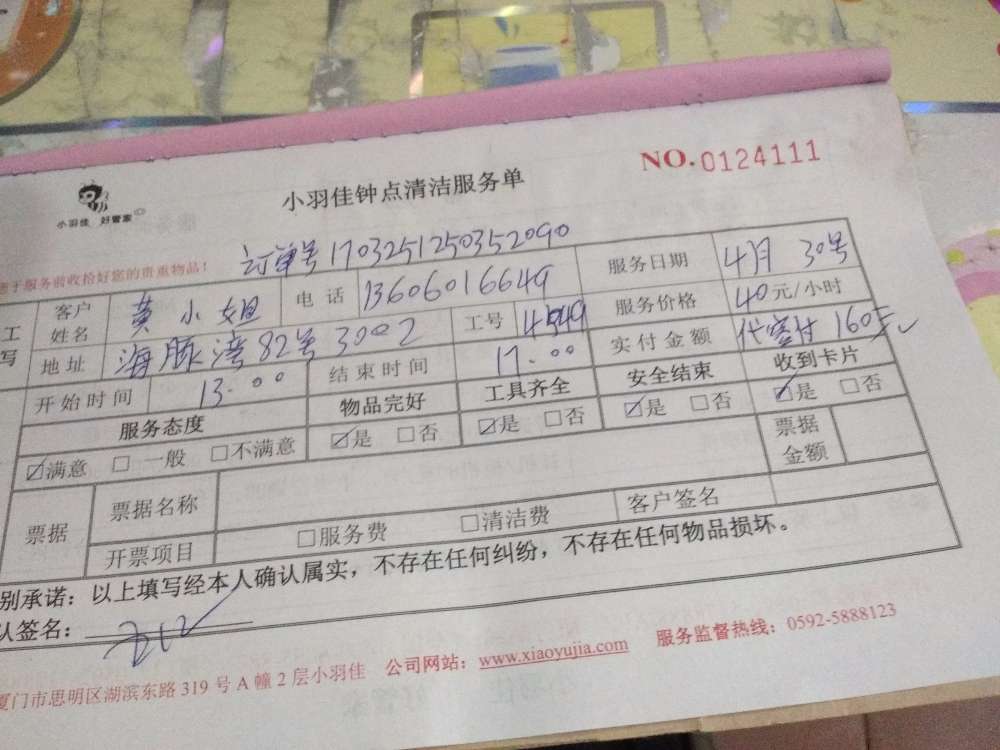 NO.0124111
小羽佳钟点清洁服务单
小羽佳 好管家
于服务前收拾好您的贵重物品！ 订单号1703251250352090
工 客户姓名 黄小姐 电话 13606016649 服务日期 4月30号
写 地址 海豚湾82号3002 工号 服务价格 40元/小时
开始时间 13.00 结束时间 17.00 实付金额 代客付160元
服务态度 物品完好 工具齐全 安全结束 收到卡片
☑满意 □一般 □不满意 ☑是 □否 ☑是 □否 ☑是 □否 ☑是 □否
票据 票据名称 票据金额
开票项目 □服务费 □清洁费 客户签名
别承诺：以上填写经本人确认属实，不存在任何纠纷，不存在任何物品损坏。
认签名：
厦门市思明区湖滨东路319号A幢2层小羽佳 公司网站：www.xiaoyujia.com 服务监督热线：0592-5888123